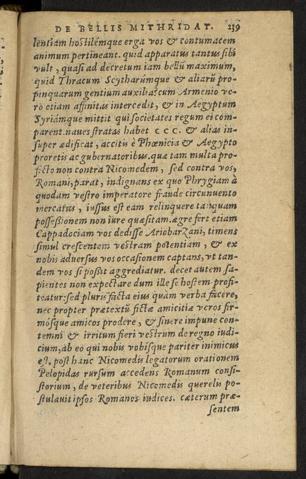 DE BELLIS MITHRIDAT. 219
lentiam hostilémque erga vos & contumacem
animum pertineant. quid apparatus tantus sibi
vult, quasi ad decretum iam bellū maximum,
quid Thracum Scytharúmque & aliarū pro-
pinquarum gentium auxilia: cum Armenio ve-
rò etiam affinitas intercedit, & in Aegyptum
Syriámque mittit qui societates regum ei com-
parent. naues stratas habet ccc. & alias in-
super ædificat, accitis è Phœnicia & Aegypto
proretis ac gubernatoribus. quæ tam multa pro-
fectò non contra Nicomedem, sed contra vos,
Romani, parat, indignans ex quo Phrygiam à
quodam vestro imperatore fraude circunuento
mercatus, iussus est eam relinquere tanquam
possessionem non iure quæsitam. ægre fert etiam
Cappadociam vos dedisse Ariobarzani, timens
simul crescentem vestram potentiam, & ex
nobis aduersus vos occasionem captans, vt tan-
dem vos si possit aggrediatur. decet autem sa-
pientes non expectare dum ille se hostem profi-
teatur: sed pluris facta eius quàm verba facere,
nec propter prætextū fictæ amicitiæ veros fir-
mósque amicos prodere, & sinere impune con-
temni & irritum fieri vestrum de regno iudi-
cium, ab eo qui nobis vobisque pariter inimicus
est. post hanc Nicomedis legatorum orationem
Pelopidas rursum accedens Romanum consi-
storium, de veteribus Nicomedis querelis po-
stulauit ipsos Romanos iudices. cæterum præ-
sentem